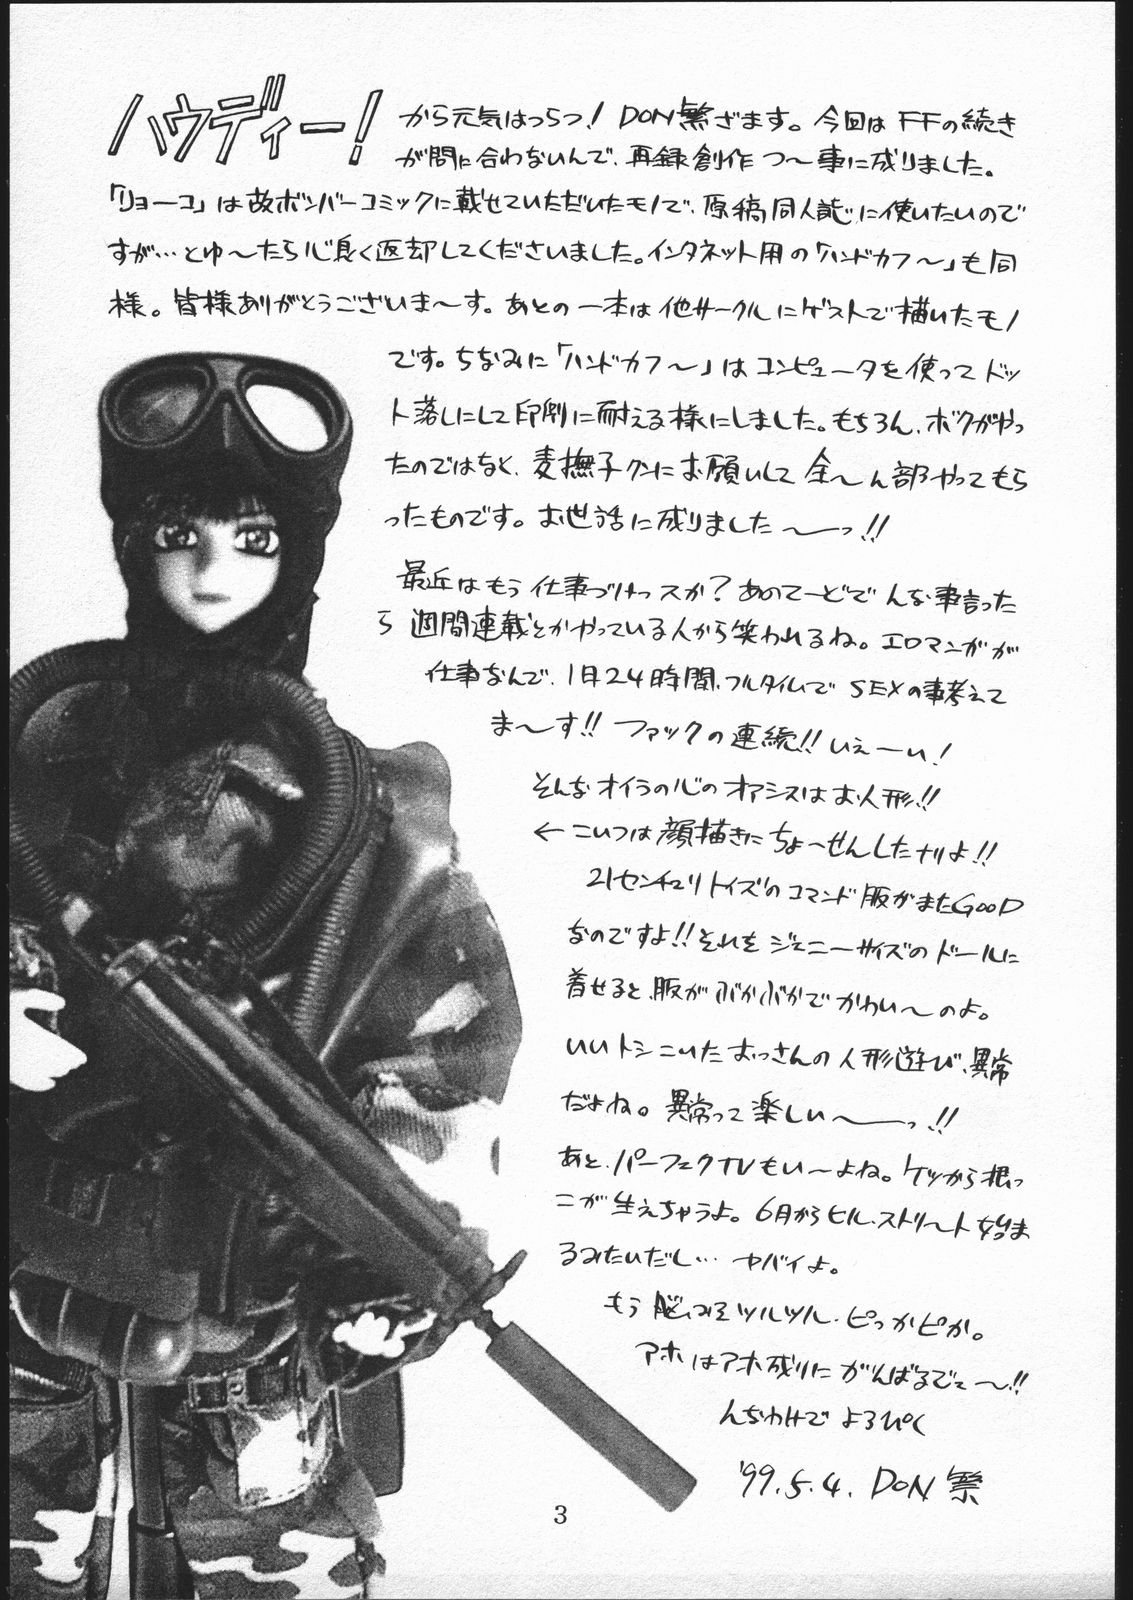 ハウディー! から元気はっらつ! DON繁ざます。今回はFFの続き
が間に合わないんで、再録創作つ〜事に成りました。
「リョーコ」は故ボンバーコミックに載せていただいたモノで、原稿同人誌に使いたいので
すが…とゆ〜たら心良く返却してくださいました。インタネット用の「ハンドカフ〜」も同
様。皆様ありがとうございま〜す。あとの一本は他サークルにゲストで描いたモノ
です。ちなみに「ハンドカフ〜」はコンピュータを使ってドッ
ト落しにして印刷に耐える様にしました。もちろん、ボクがやっ
たのではなく、麦撫子クンにお願いして全〜ん部やってもら
ったものです。お世話に成りました〜っ!!
最近はもう仕事づけっスか? あのてーどでんな事言った
ら週間連載とかやっている人から笑われるね。エロマンガが
仕事なんで、1日24時間、フルタイムでSEXの事考えて
ま〜す!! ファックの連続!! いぇーい!
そんなオイラの心のオアシスはお人形!!
← こいつは顔描きにちょ〜せんしたナリよ!!
21センチュリトイズのコマンド服がまたGOOD
なのですよ!! それをジェニーサイズのドールに
着せると、服がぶかぶかでかわい〜のよ。
いいトシこいたおっさんの人形遊び、異常
だよね。異常って楽しい〜っ!!
あと、パーフェクTVもい〜よね。ケツから根っ
こが生えちゃうよ。6月からヒル・ストリート始ま
るみたいだし… ヤバイよ。
もう脳みそツルツル・ピっかピか。
アホはアホ成りにがんばるでぇ〜!!
んぢわけでよろぴく
'99.5.4. DON繁
3